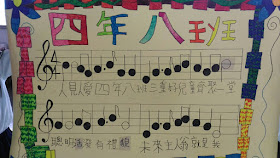 四年八班
人見人愛四年八班三十好兒童齊聚一堂
聰明活潑有禮貌 未來主人翁就是我